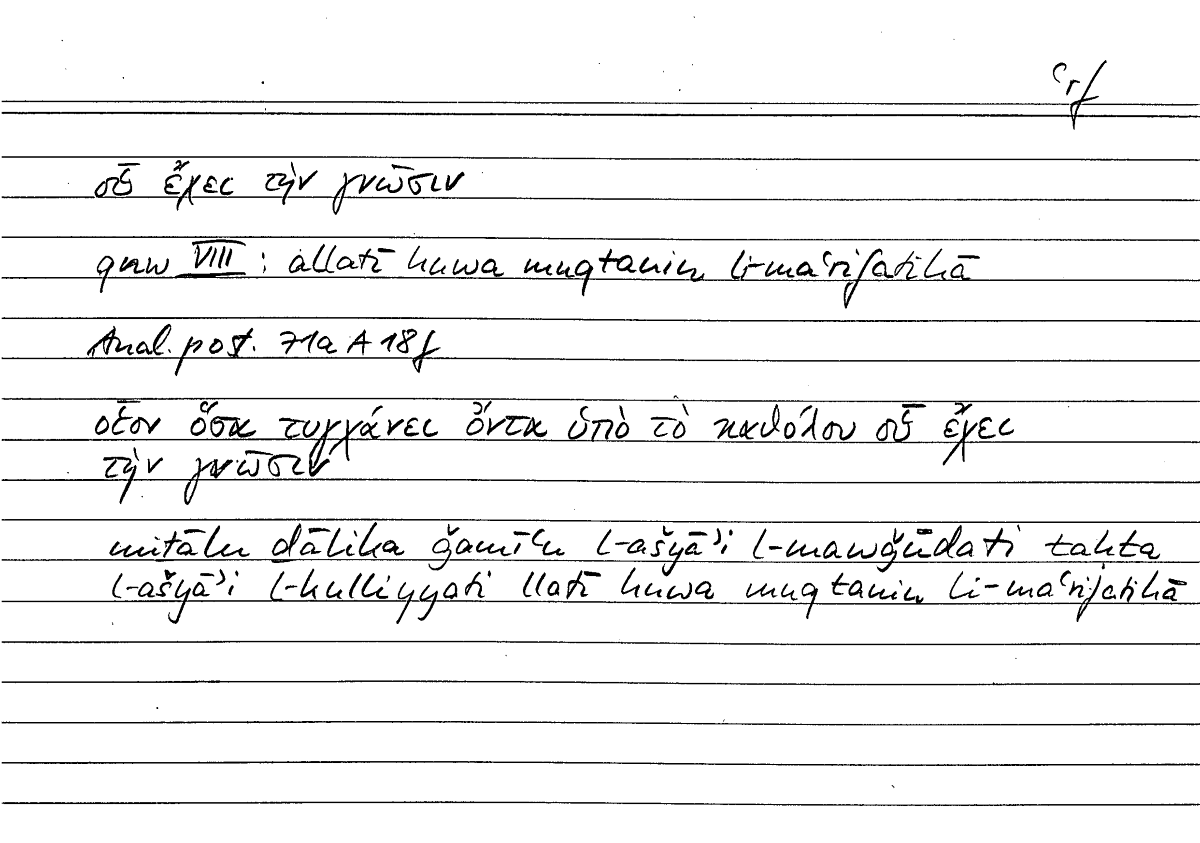 ʿrf
οὗ ἔχει τὴν γνῶσιν
qnw VIII : allatī huwa muqtanin li-maʿrifatihā
Anal. post. 71a A 18f
οἷον ὅσα τυγχάνει ὄντα ὑπὸ τὸ καθόλου οὗ ἔχει
τὴν γνῶσιν
miṯālu ḏālika ǧamīʿu l-ašyāʾi l-mawǧūdati taḥta
l-ašyāʾi l-kulliyyati llatī huwa muqtanin li-maʿrifatihā